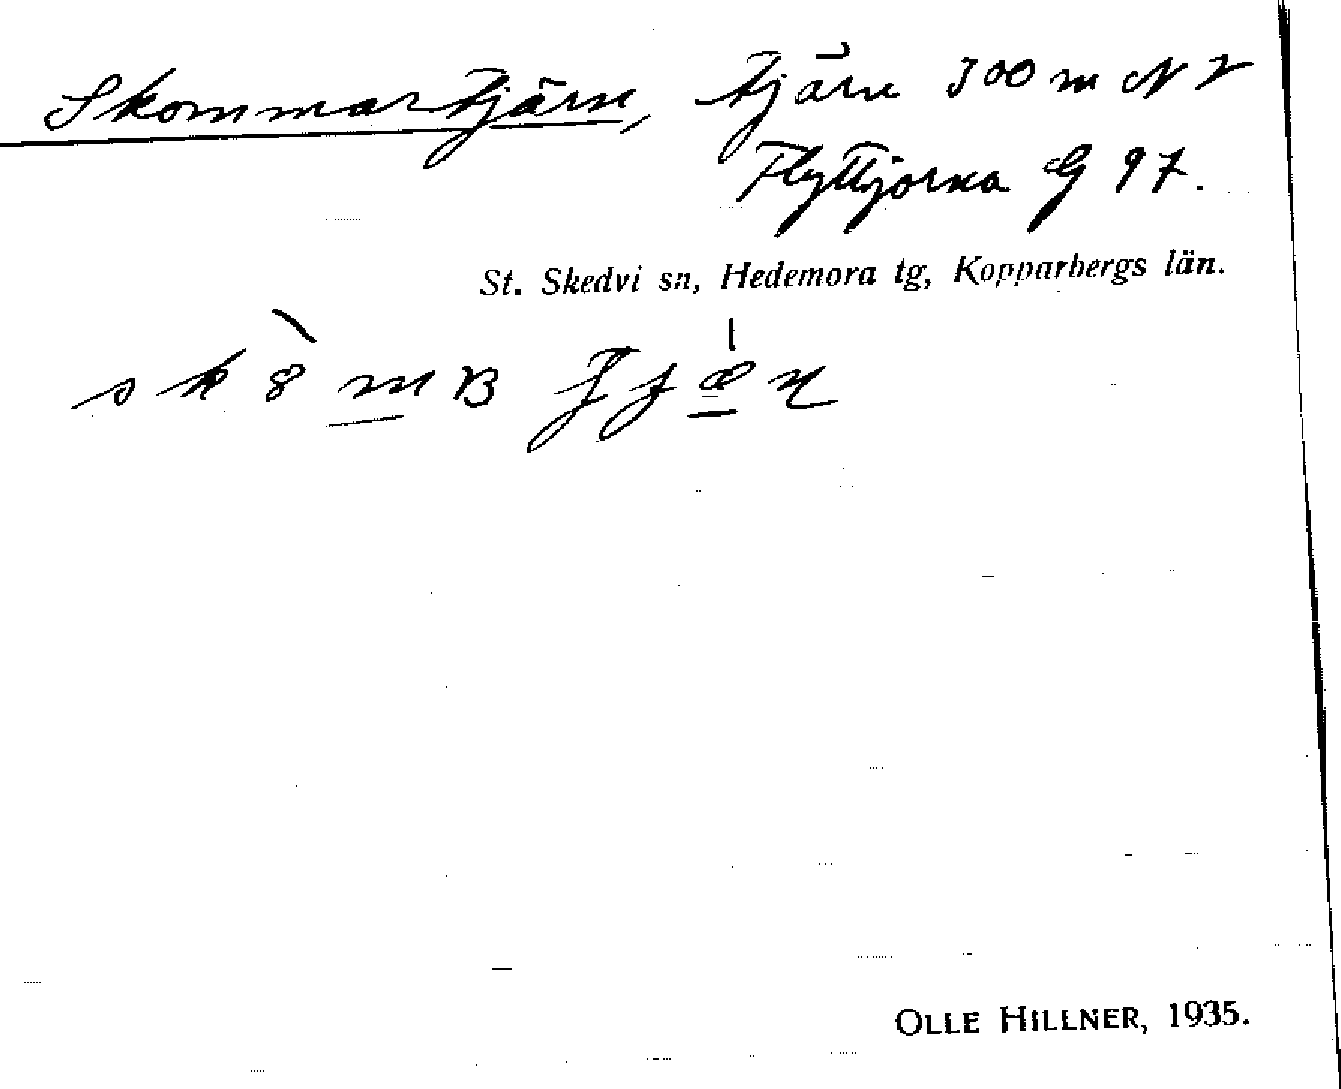 Skommartjärn, tjärn 300 m NV
Flyttjorna G 97.
St. Skedvi sn, Hedemora tg, Kopparbergs län.
OLLE HILLNER, 1935.